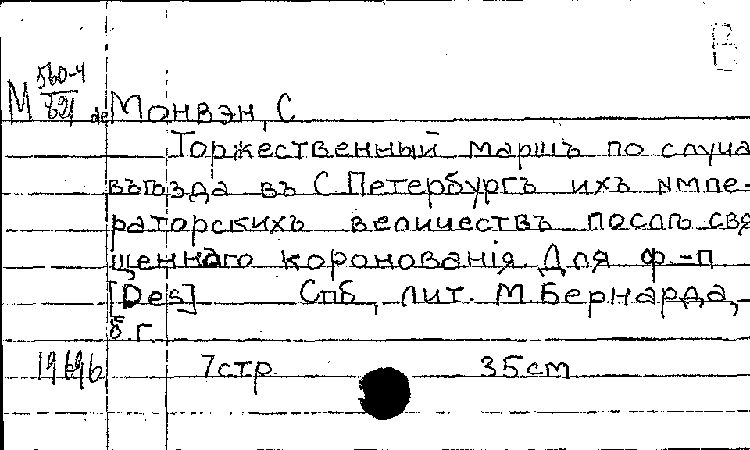 В
М 560-4
821 de Монвэн, С
Торжественный маршъ по случа
въѣзда въ С Петербургъ ихъ импе-
раторскихъ величествъ послѣ свя
щеннаго коронованія. Для ф-п
[Des] Спб, лит. М Бернарда,-
б г.
7 стр 35 см